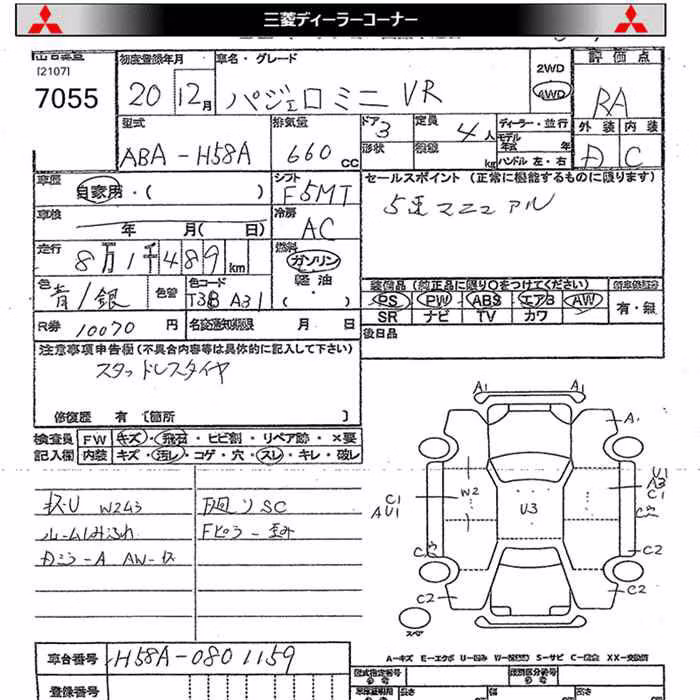 三菱ディーラーコーナー
[2107]
7055
初度登録年月
20 12月
車名・グレード
パジェロミニ VR
2WD
4WD
評価点
RA
型式
ABA-H58A
排気量
660 cc
ドア
3
形状
定員
4人
kg
ディーラー・並行
モデル年式 年
ハンドル 左・右
外装 内装
D C
車歴
自家用・( )
シフト
F5MT
セールスポイント (正常に機能するものに限ります)
5速マニュアル
車検
年 月( 日)
冷房
AC
走行
8万1千489km
燃料
ガソリン
軽油
・( )
色
青/銀
色替
色コード
T3B A31
装備品 (純正品に限り○をつけてください)
PS PW ABS エアB AW
SR ナビ TV カワ
有・無
R券 10070 円
名変通知期限 月 日
後日品
注意事項申告欄 (不具合内容等は具体的に記入して下さい)
スタッドレスタイヤ
修復歴 有 〔箇所 〕
検査員記入欄
FW キズ・飛石・ヒビ割・リペア跡・×要
内装 キズ・汚レ・コゲ・穴・スレ・キレ・破レ
W2 U3
A1 A1
A1
U1
A3
C1
C1
AU1
C2
C2
C2
スペア
A-キズ E-エクボ U-凹み S-サビ C-腐食 XX-交換済
車台番号
H58A-0801159
登録番号
型式指定番号
類別区分番号